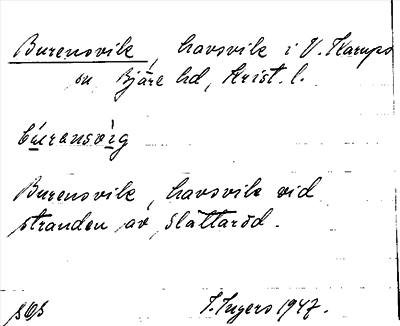 Burensvik, havsvik i V. Karups
sn Bjäre hd, Krist. l.
búrənsvìg
Burensvik, havsvik vid
stranden av Slättaröd.
I. Ingers 1947.